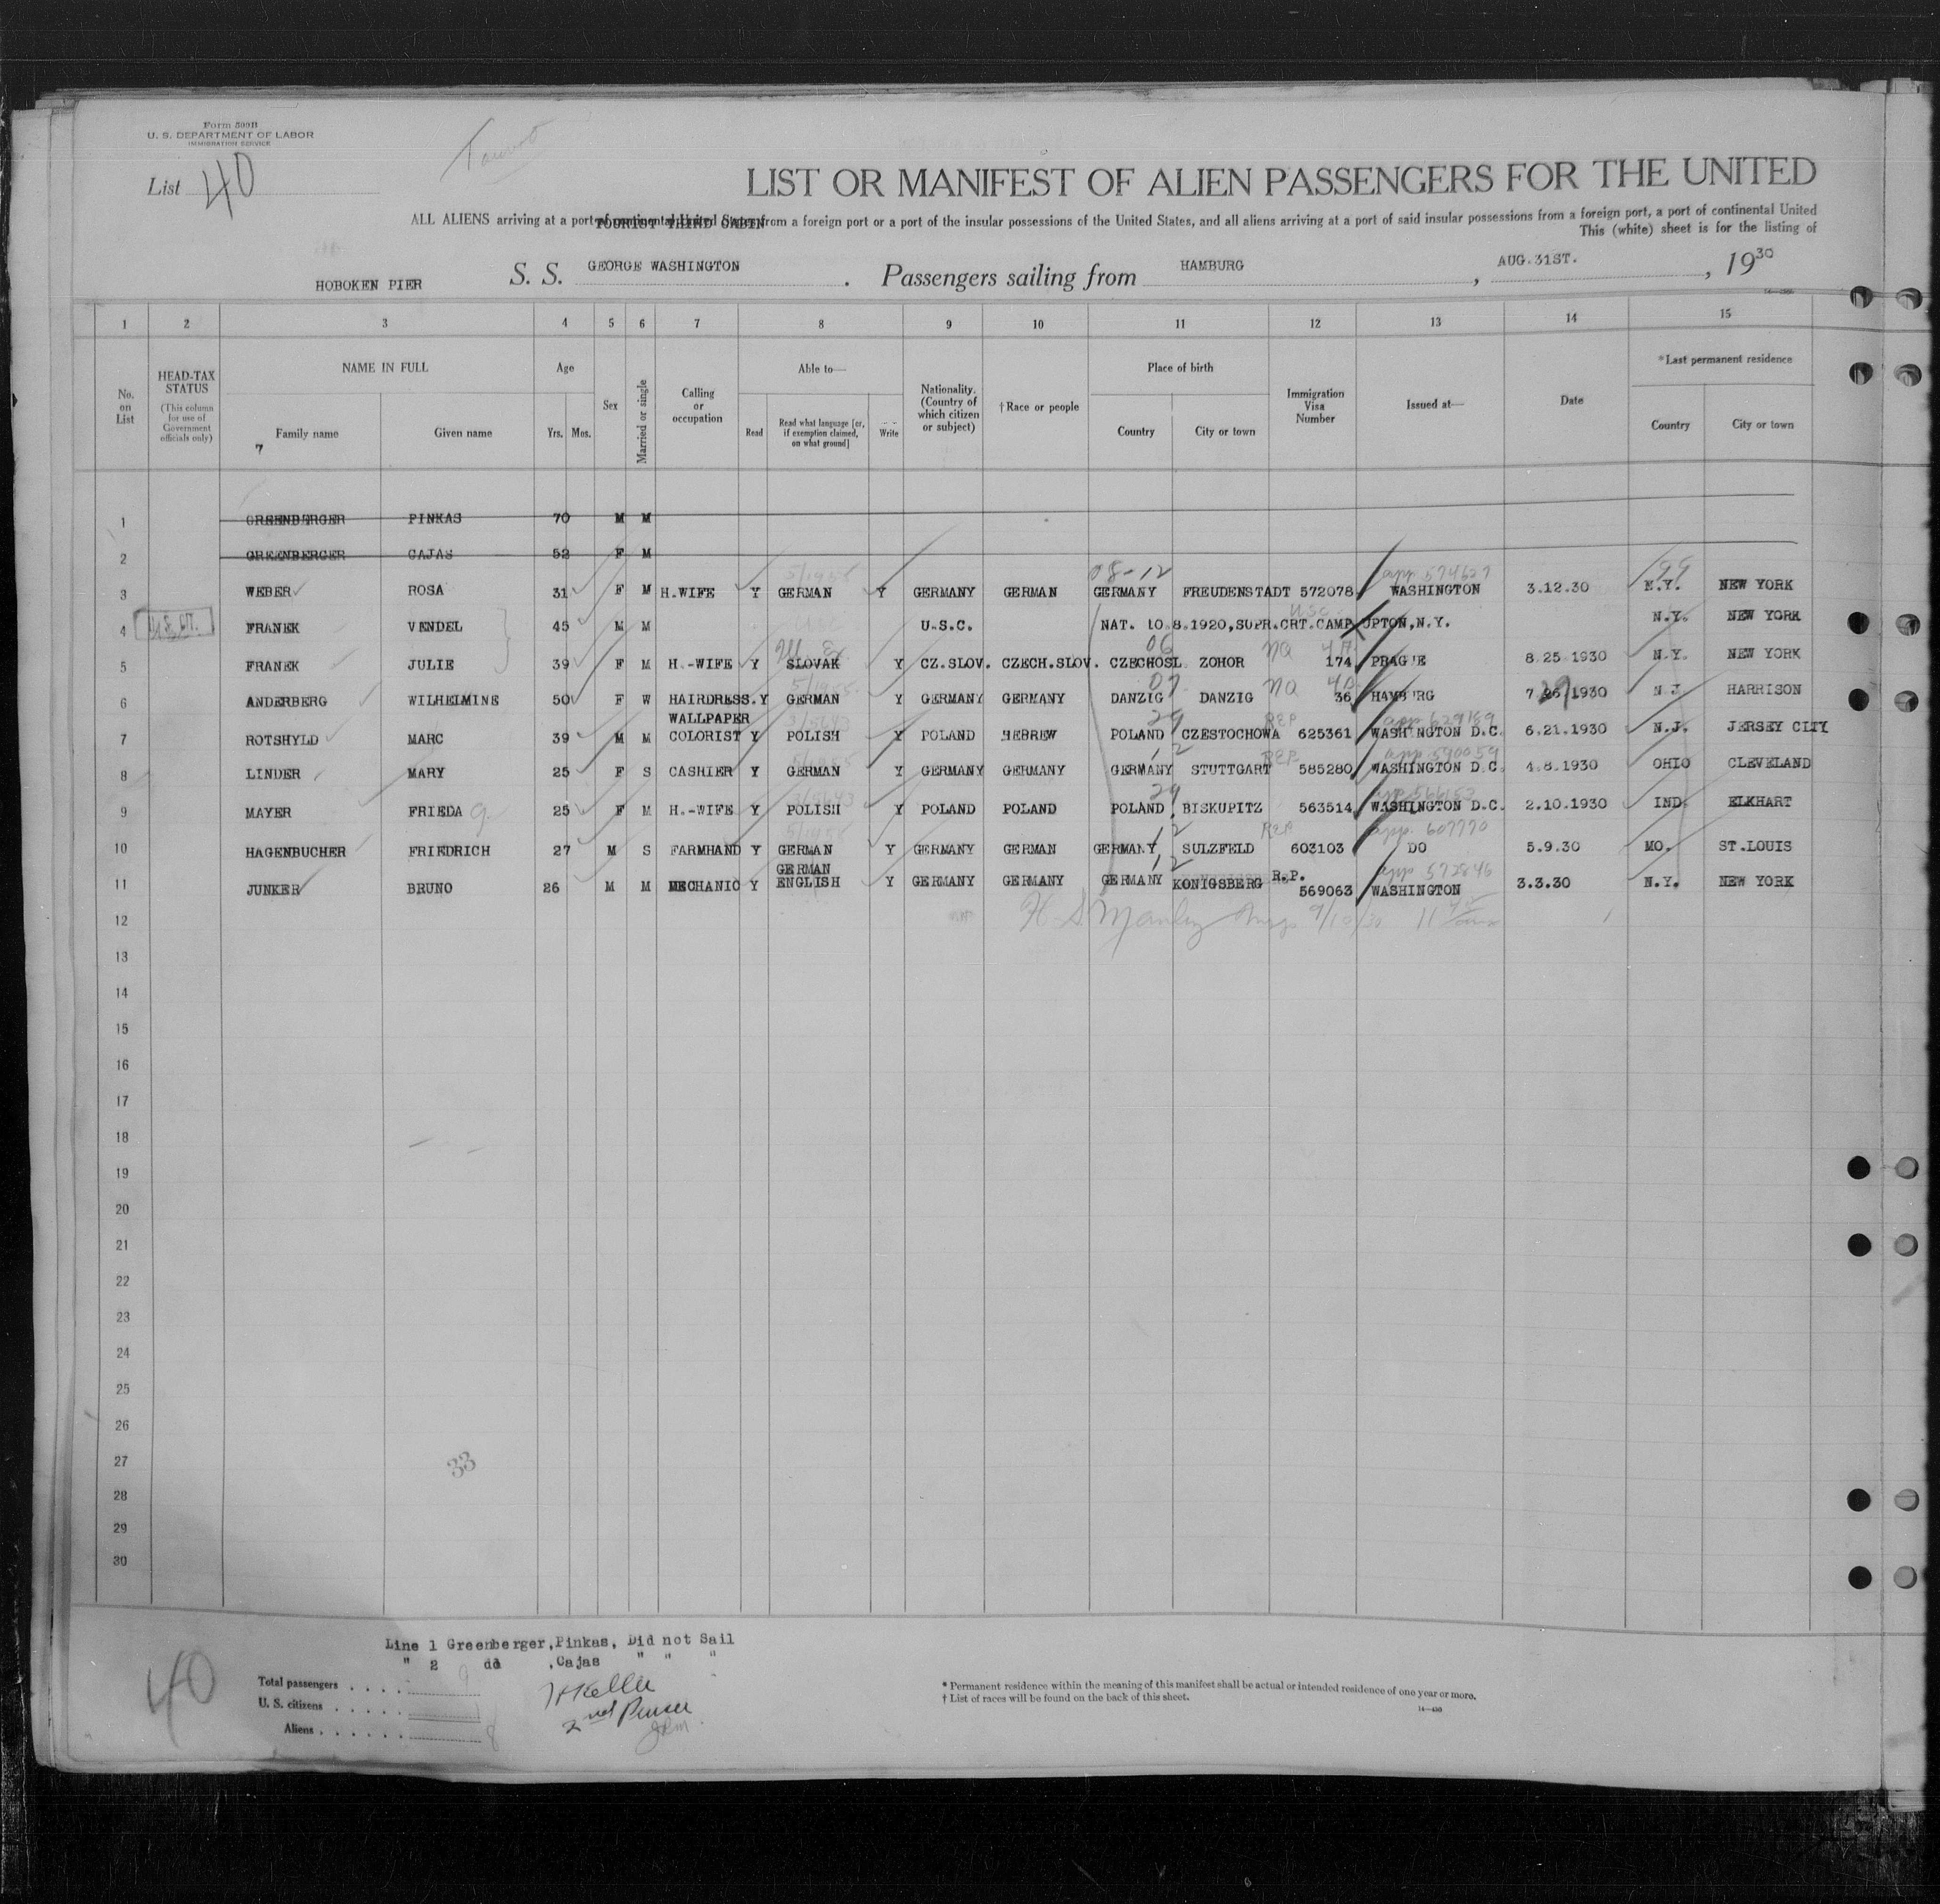 Form 500B
U. S. DEPARTMENT OF LABOR
IMMIGRATION SERVICE
List 40
LIST OR MANIFEST OF ALIEN PASSENGERS FOR THE UNITED
ALL ALIENS arriving at a port of continental United States from a foreign port or a port of the insular possessions of the United States, and all aliens arriving at a port of said insular possessions from a foreign port, a port of continental United
TOURIST THIRD CABIN
This (white) sheet is for the listing of
HOBOKEN PIER S. S. GEORGE WASHINGTON . Passengers sailing from HAMBURG , AUG.31ST. , 1930
1 2 3 4 5 6 7 8 9 10 11 12 13 14 15
No. on List
HEAD-TAX STATUS
(This column for use of Government officials only)
NAME IN FULL
Family name Given name
7
Age
Yrs. Mos.
Sex
Married or single
Calling or occupation
Able to—
Read
Read what language [or, if exemption claimed, on what ground]
Write
Nationality. (Country of which citizen or subject)
†Race or people
Place of birth
Country City or town
Immigration Visa Number
Issued at—
Date
*Last permanent residence
Country City or town
1 GREENBERGER PINKAS 70 M M
2 GREENBERGER CAJAS 52 F M
08-12 app 574627 199
3 WEBER ROSA 31 F M H.WIFE Y GERMAN Y GERMANY GERMAN GERMANY FREUDENSTADT 572078 WASHINGTON 3.12.30 N.Y. NEW YORK
USC
4 U.S. CIT. FRANEK VENDEL 45 M M U.S.C. NAT. 10.8.1920,SUPR.CRT.CAMP UPTON,N.Y. N.Y. NEW YORK
06 NQ
5 FRANEK JULIE 39 F M H.-WIFE Y SLOVAK Y CZ.SLOV. CZECH.SLOV. CZECHOSL ZOHOR 174 PRAGUE 8 25 1930 N.Y. NEW YORK
5/1955 07 NQ
6 ANDERBERG WILHELMINE 50 F W HAIRDRESS. Y GERMAN Y GERMANY GERMANY DANZIG DANZIG 36 HAMBURG 7 26 1930 N J HARRISON
WALLPAPER 29 REP app 629189
7 ROTSHYLD MARC 39 M M COLORIST Y POLISH Y POLAND HEBREW POLAND CZESTOCHOWA 625361 WASHINGTON D.C. 6.21.1930 N.J. JERSEY CITY
5/1955 12 REP app 590059
8 LINDER MARY 25 F S CASHIER Y GERMAN Y GERMANY GERMANY GERMANY STUTTGART 585280 WASHINGTON D.C. 4.8.1930 OHIO CLEVELAND
29
9 MAYER FRIEDA 25 F M H.-WIFE Y POLISH Y POLAND POLAND POLAND BISKUPITZ 563514 WASHINGTON D.C. 2.10.1930 IND. ELKHART
5/1955 12 REP app. 607770
10 HAGENBUCHER FRIEDRICH 27 M S FARMHAND Y GERMAN Y GERMANY GERMAN GERMANY SULZFELD 603103 DO 5.9.30 MO. ST.LOUIS
GERMAN 12 R.P. app 572846
11 JUNKER BRUNO 26 M M MECHANIC Y ENGLISH Y GERMANY GERMANY GERMANY KONIGSBERG 569063 WASHINGTON 3.3.30 N.Y. NEW YORK
12 H S Manley
13
14
15
16
17
18
19
20
21
22
23
24
25
26
27 33
28
29
30
Line 1 Greenberger,Pinkas, Did not Sail
" 2 dd ,Cajas " " "
40
Total passengers 9
U. S. citizens 1
Aliens 8
2nd Purser
* Permanent residence within the meaning of this manifest shall be actual or intended residence of one year or more.
† List of races will be found on the back of this sheet.
14—430